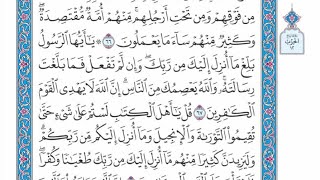 مِن فَوْقِهِمْ وَمِن تَحْتِ أَرْجُلِهِم مِّنْهُمْ أُمَّةٌ مُّقْتَصِدَةٌ
وَكَثِيرٌ مِّنْهُمْ سَآءَ مَا يَعْمَلُونَ ٦٦ يَٰٓأَيُّهَا ٱلرَّسُولُ
بَلِّغْ مَآ أُنزِلَ إِلَيْكَ مِن رَّبِّكَ وَإِن لَّمْ تَفْعَلْ فَمَا بَلَّغْتَ
رِسَالَتَهُۥ وَٱللَّهُ يَعْصِمُكَ مِنَ ٱلنَّاسِ إِنَّ ٱللَّهَ لَا يَهْدِى ٱلْقَوْمَ
ٱلْكَٰفِرِينَ ٦٧ قُلْ يَٰٓأَهْلَ ٱلْكِتَٰبِ لَسْتُمْ عَلَىٰ شَىْءٍ حَتَّىٰ
تُقِيمُوا۟ ٱلتَّوْرَىٰةَ وَٱلْإِنجِيلَ وَمَآ أُنزِلَ إِلَيْكُم مِّن رَّبِّكُمْ
وَلَيَزِيدَنَّ كَثِيرًا مِّنْهُم مَّآ أُنزِلَ إِلَيْكَ مِن رَّبِّكَ طُغْيَٰنًا وَكُفْرًا